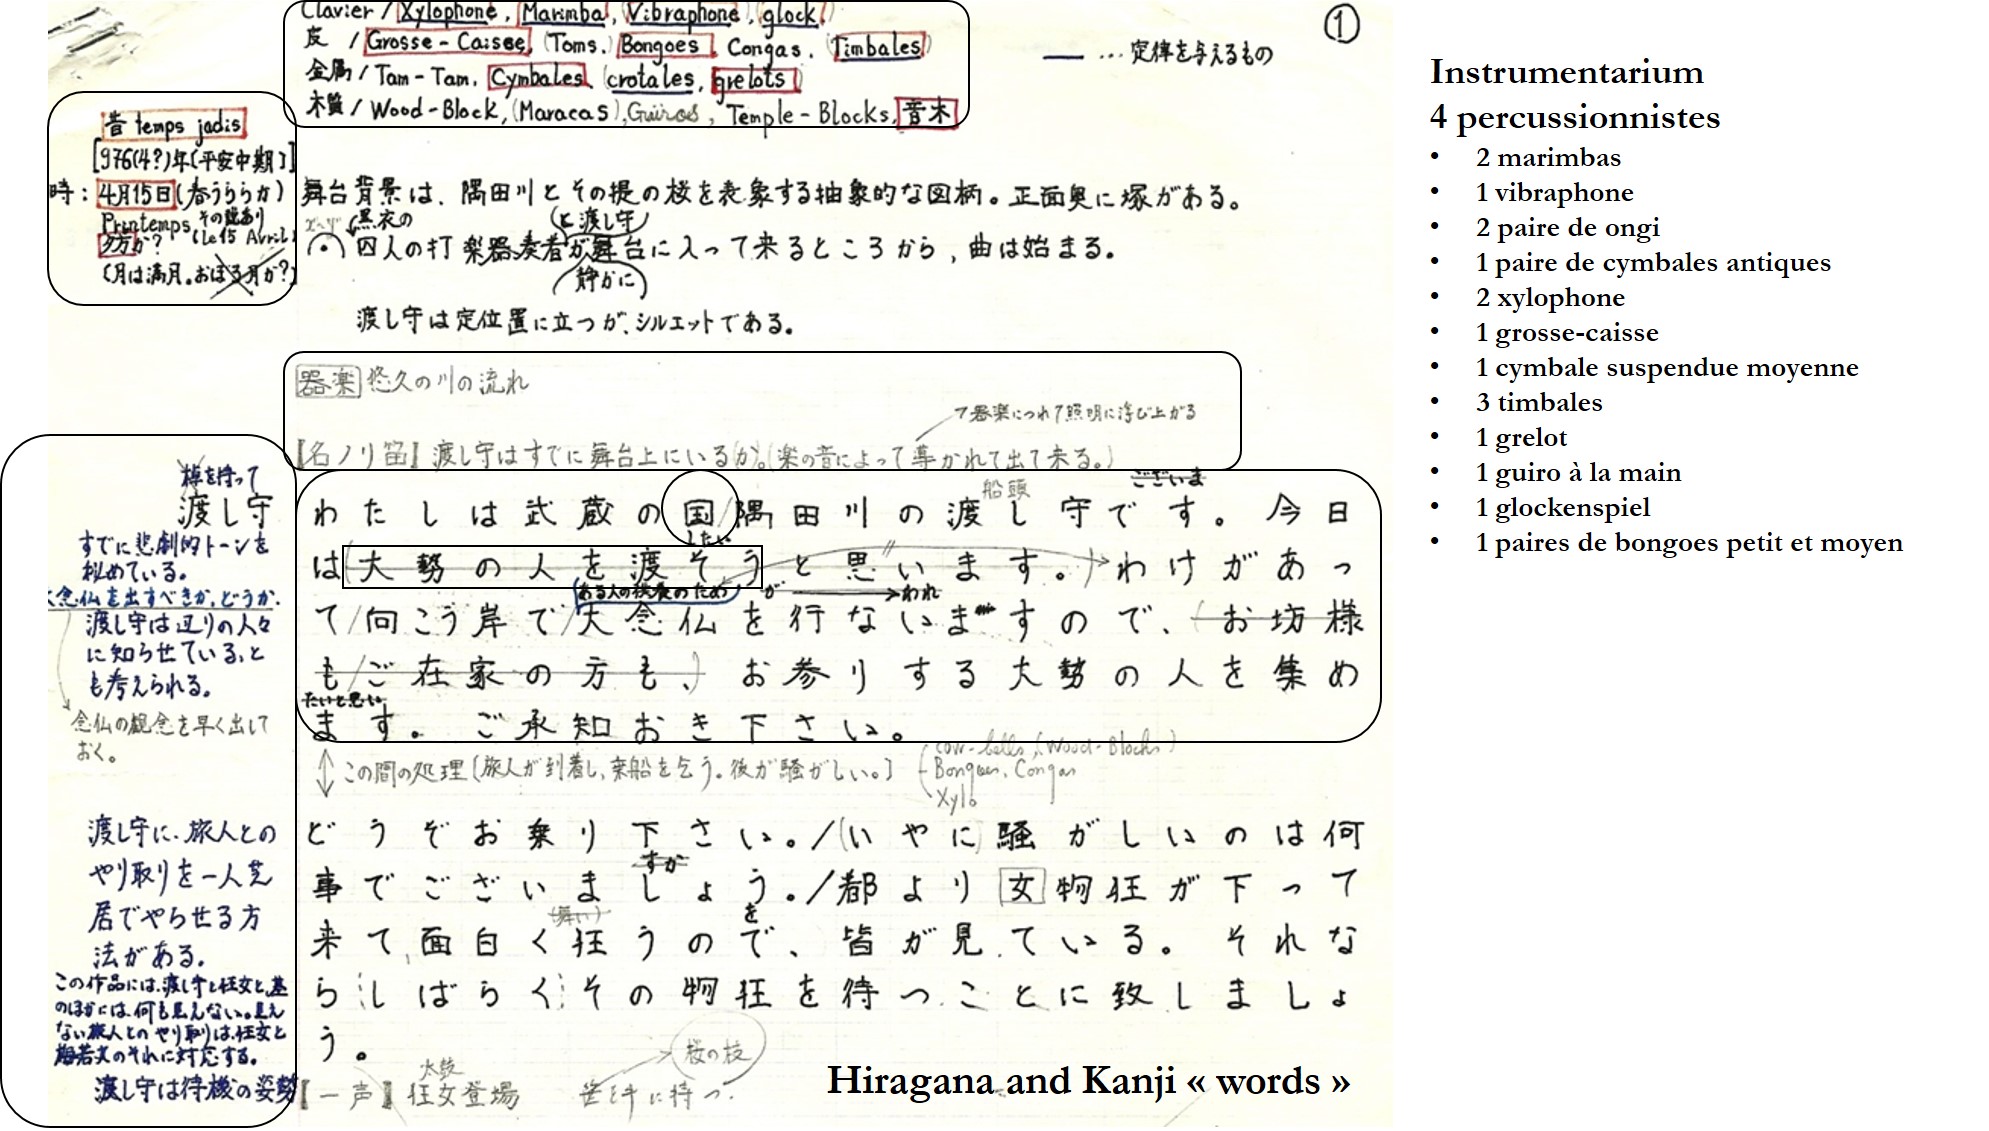 Clavier / Xylophone, Marimba, Vibraphone, glock.
皮 / Grosse-Caisse, (Toms.) Bongoes, Congas. (Timbales)
金属 / Tam-Tam, Cymbales, (crotales, grelots)
木質 / Wood-Block, (Maracas), Güiros, Temple-Blocks, 音木
… 定律を与えるもの
①
昔 temps jadis
[976(4?)年(平安中期)]
時: 4月15日(春うららか)
Printemps その説あり
夕方か? (Le 15 Avril)
(月は満月。おぼろ月か?)
舞台背景は、隅田川とその堤の桜を表象する抽象的な図柄。正面奥に塚がある。
黒衣の
(と渡し守)
四人の打楽器奏者が舞台に入って来るところから、曲は始まる。
(静かに)
渡し守は定位置に立つが、シルエットである。
器楽 悠久の川の流れ
器楽につれて照明に浮び上がる
【名ノリ笛】渡し守はすでに舞台上にいる(か)。(楽の音によって導かれて出て来る。)
棹を持って
渡し守
すでに悲劇的トーンを
秘めている。
大念仏を出すべきか、どうか。
渡し守は辺りの人々
に知らせている、と
も考えられる。
念仏の観念を早く出して
おく。
船頭
ございま
わたしは武蔵の国/隅田川の渡し守です。今日
したい
は(大勢の人を渡そうと思います。)わけがあっ
ある人の供養のため
が
われ
て/向こう岸で/大念仏を行ないますので、(お坊様
も/ご在家の方も、)お参りする大勢の人を集め
たいと思い
ます。ご承知おき下さい。
この間の処理(旅人が到着し、乗船を乞う。後が騒がしい。)
Cow-bells, (Wood-Blocks)
Bongoes, Congas
Xylo
渡し守に、旅人との
やり取りを一人芝
居でやらせる方
法がある。
この作品には、渡し守と狂女と、墓
のほかには、何も見えない。見え
ない旅人とのやり取りは、狂女と
梅若丸のそれに対応する。
渡し守は待機の姿勢
どうぞお乗り下さい。/(いやに)騒がしいのは何
すか
事でございましょう。/都より女物狂が下って
(舞い)
を
来て、面白く狂うので、皆が見ている。それな
らしばらくその物狂を待つことに致しましょ
う。
桜の枝
太鼓
【一声】狂女登場 笹を手に持つ。
Hiragana and Kanji « words »
Instrumentarium
4 percussionnistes
• 2 marimbas
• 1 vibraphone
• 2 paire de ongi
• 1 paire de cymbales antiques
• 2 xylophone
• 1 grosse-caisse
• 1 cymbale suspendue moyenne
• 3 timbales
• 1 grelot
• 1 guiro à la main
• 1 glockenspiel
• 1 paires de bongoes petit et moyen